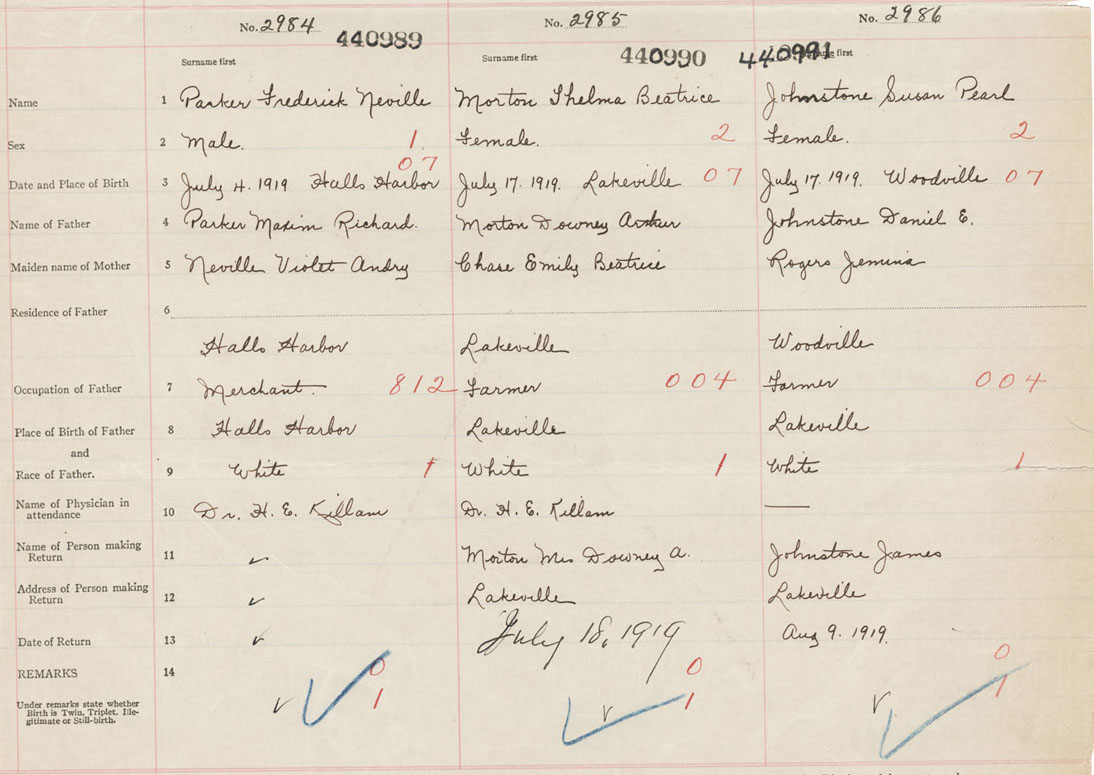 No. 2984 No. 2985 No. 2986
440989 440990 440991
Surname first Surname first Surname first
Name 1 Parker Frederick Neville Morton Thelma Beatrice Johnstone Susan Pearl
Sex 2 Male. 1. Female. 2 Female. 2
07
Date and Place of Birth 3 July 4. 1919 Halls Harbor July 17. 1919. Lakeville 07 July 17. 1919. Woodville 07
Name of Father 4 Parker Maxim Richard. Morton Downey Arthur Johnstone Daniel E.
Maiden name of Mother 5 Neville Violet Andry Chase Emily Beatrice Rogers Jemina
Residence of Father 6
Halls Harbor Lakeville Woodville
Occupation of Father 7 Merchant. 812 Farmer 004 Farmer 004
Place of Birth of Father 8 Halls Harbor Lakeville Lakeville
and
Race of Father. 9 White 1 White 1 White 1
Name of Physician in
attendance 10 Dr. H. E. Killam Dr. H. E. Killam —
Name of Person making
Return 11 ✓ Morton Mrs Downey A. Johnstone James
Address of Person making
Return 12 ✓ Lakeville Lakeville
Date of Return 13 ✓ July 18, 1919 Aug 9. 1919.
REMARKS 14 0 0 0
Under remarks state whether
Birth is Twin, Triplet, Ille-
gitimate or Still-birth. ✓ ✓ 1 ✓ ✓ 1 ✓ ✓ 1